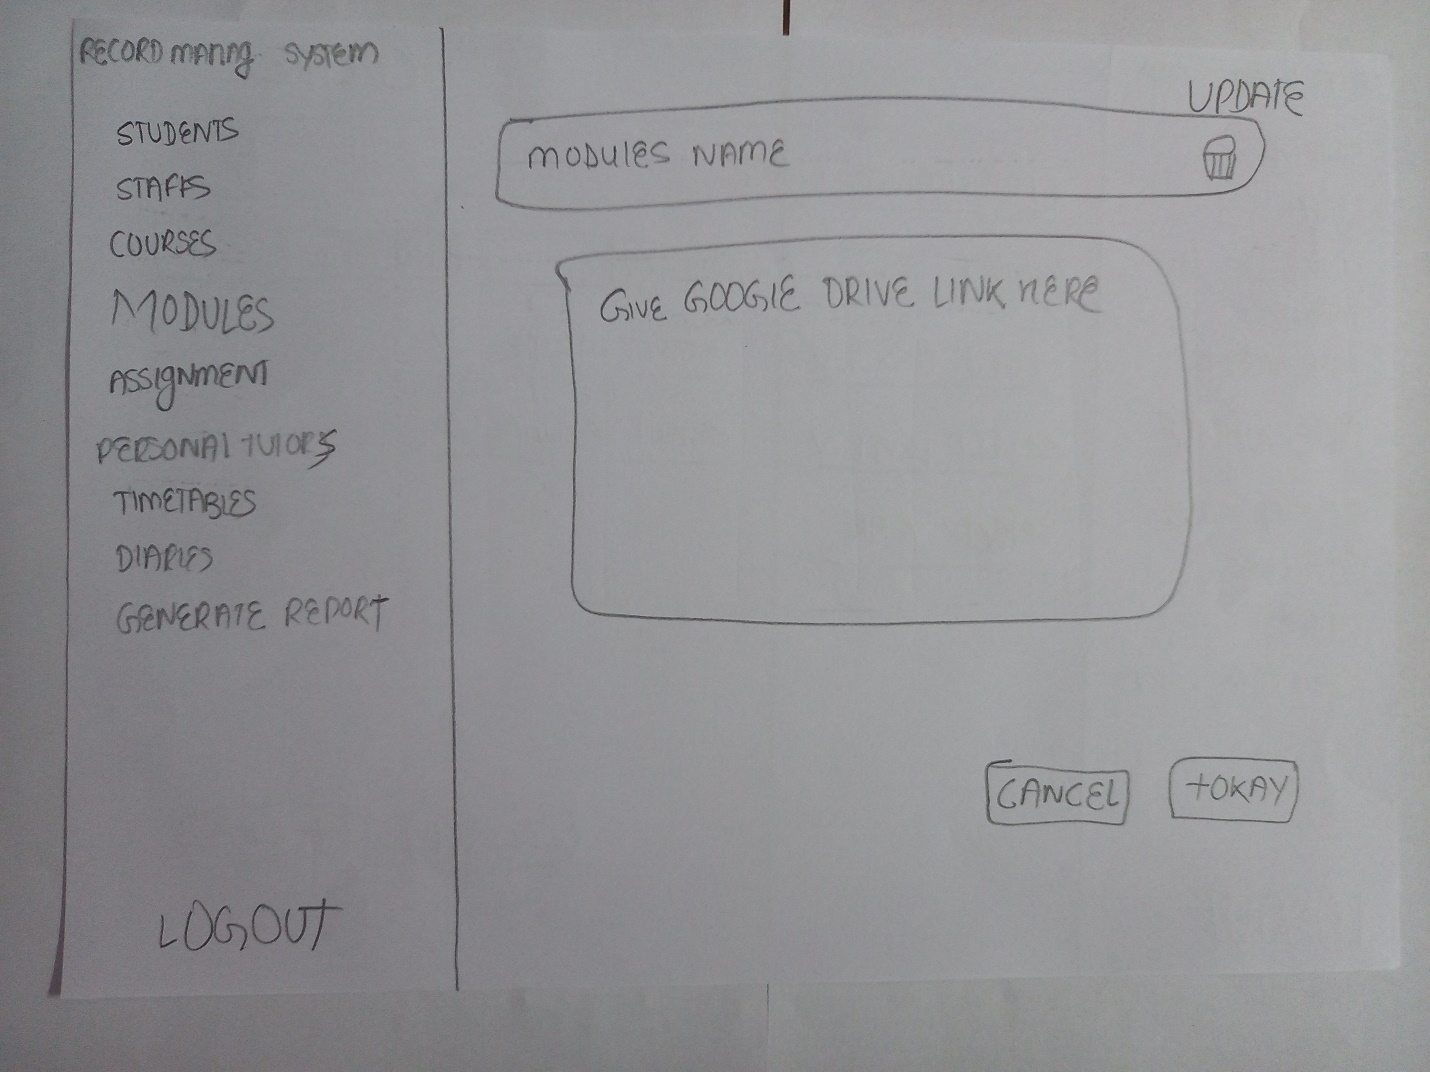 RECORD manng. SYSTEM
STUDENTS
STAFFS
COURSES
MODULES
ASSIGNMENT
PERSONAL TUTORS
TIMETABLES
DIARIES
GENERATE REPORT
LOGOUT
UPDATE
MODULES NAME
GIVE GOOGLE DRIVE LINK HERE
CANCEL
+OKAY